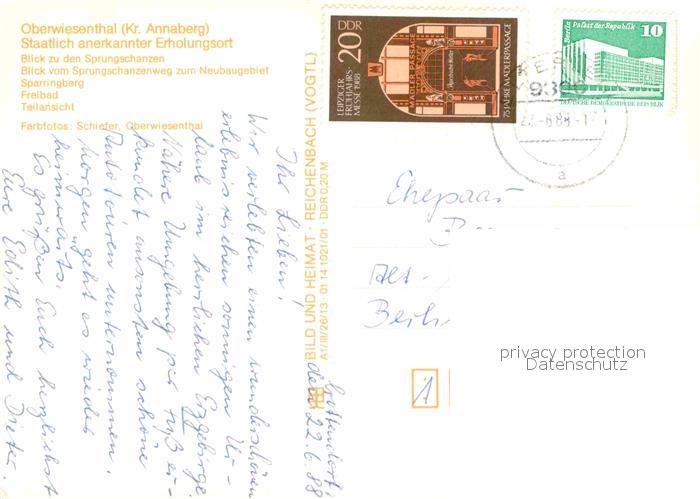 Oberwiesenthal (Kr. Annaberg)
Staatlich anerkannter Erholungsort
Blick zu den Sprungschanzen
Blick vom Sprungschanzenweg zum Neubaugebiet
Sparringberg
Freibad
Teilansicht
Farbfotos: Schiefer, Oberwiesenthal
BILD UND HEIMAT · REICHENBACH (VOGTL)
A1/III/26/13 · 01 14 1021/01 · DDR 0,20 M
DDR
20
LEIPZIGER
FRÜHJAHRS-
MESSE 1988
MÄDLER PASSAGE
75 JAHRE MÄDLERPASSAGE
Berlin Palast der Republik
10
DEUTSCHE DEMOKRATISCHE REPUBLIK
a
den 22.6.88
Ihr Lieben!
Wir verlebten einen wunderschönen
erlebnisreichen sonnigen Ur-
laub im herrlichen Erzgebirge.
Nähere Umgebung per Fuß er-
kundet ansonsten schöne
Autotouren unternommen.
Morgen geht es wieder
heimwärts.
Es grüßen Euch herzlichst
Eure Edith und Dieter.
Ehepaar
Alt-
Berlin
1
privacy protection
Datenschutz